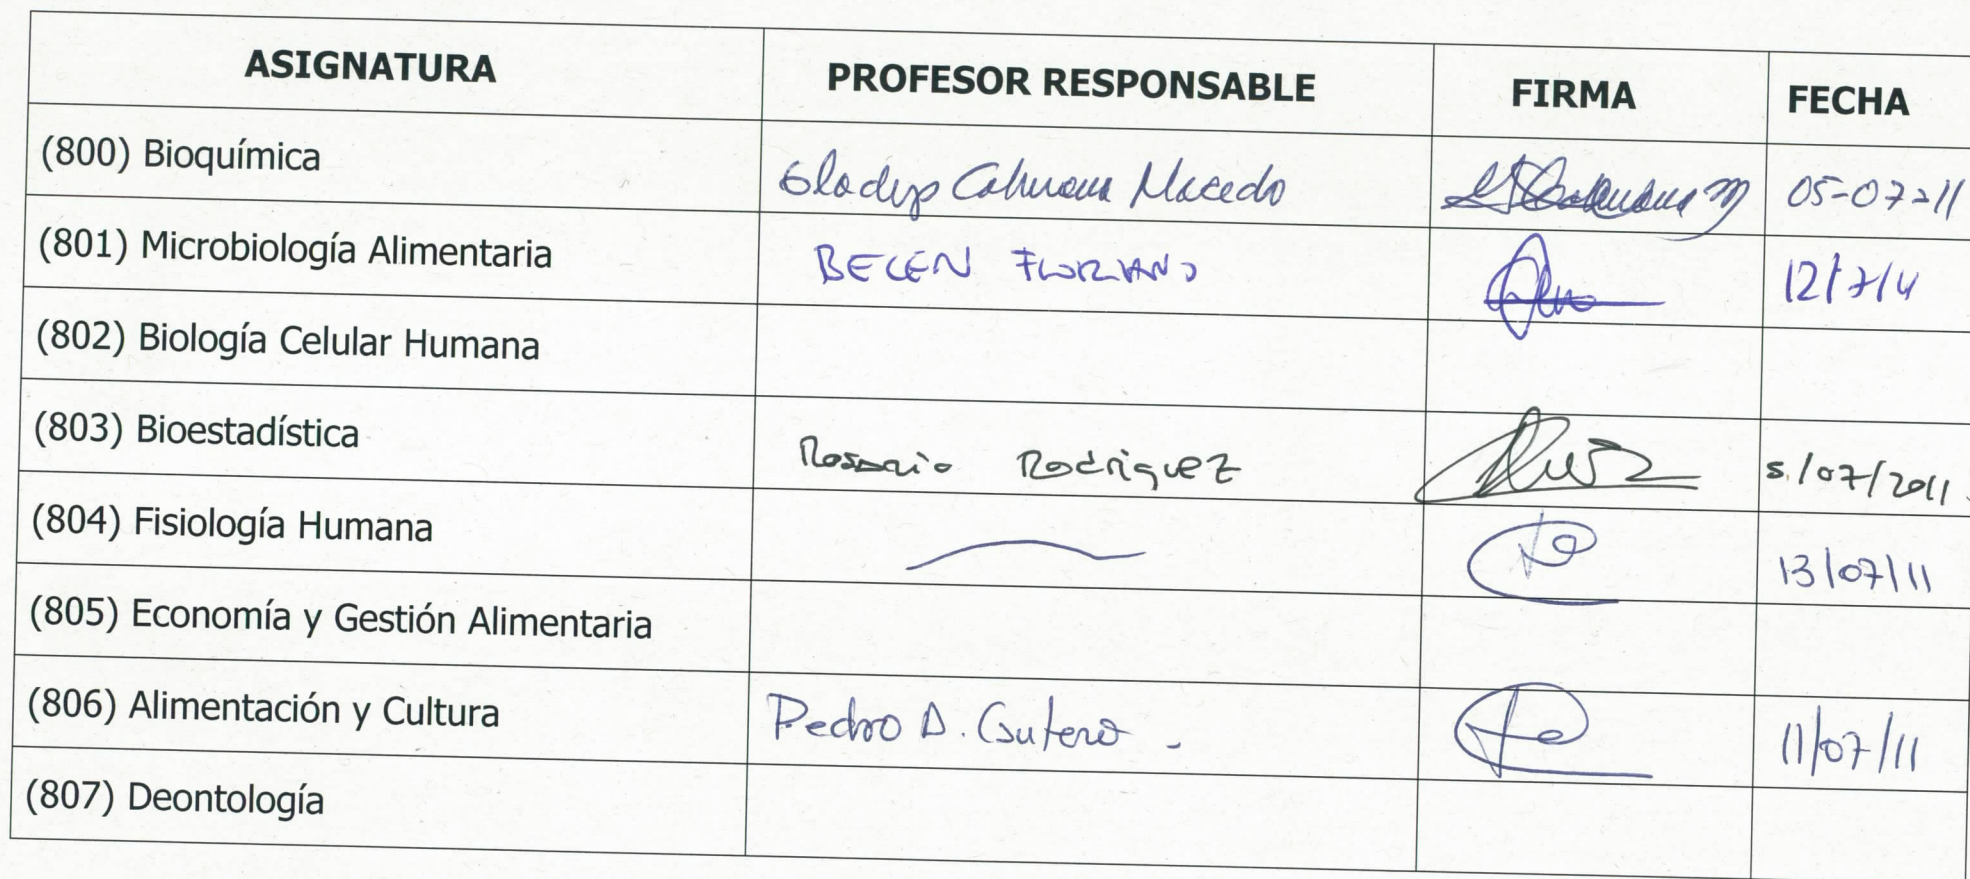 ASIGNATURA PROFESOR RESPONSABLE FIRMA FECHA
(800) Bioquímica Gladys Cahuana Macedo 05-07-11
(801) Microbiología Alimentaria BELEN FLORIANO 12/7/11
(802) Biología Celular Humana
(803) Bioestadística Rosario Rodriguez 5/07/2011
(804) Fisiología Humana 13/07/11
(805) Economía y Gestión Alimentaria
(806) Alimentación y Cultura Pedro D. 11/07/11
(807) Deontología